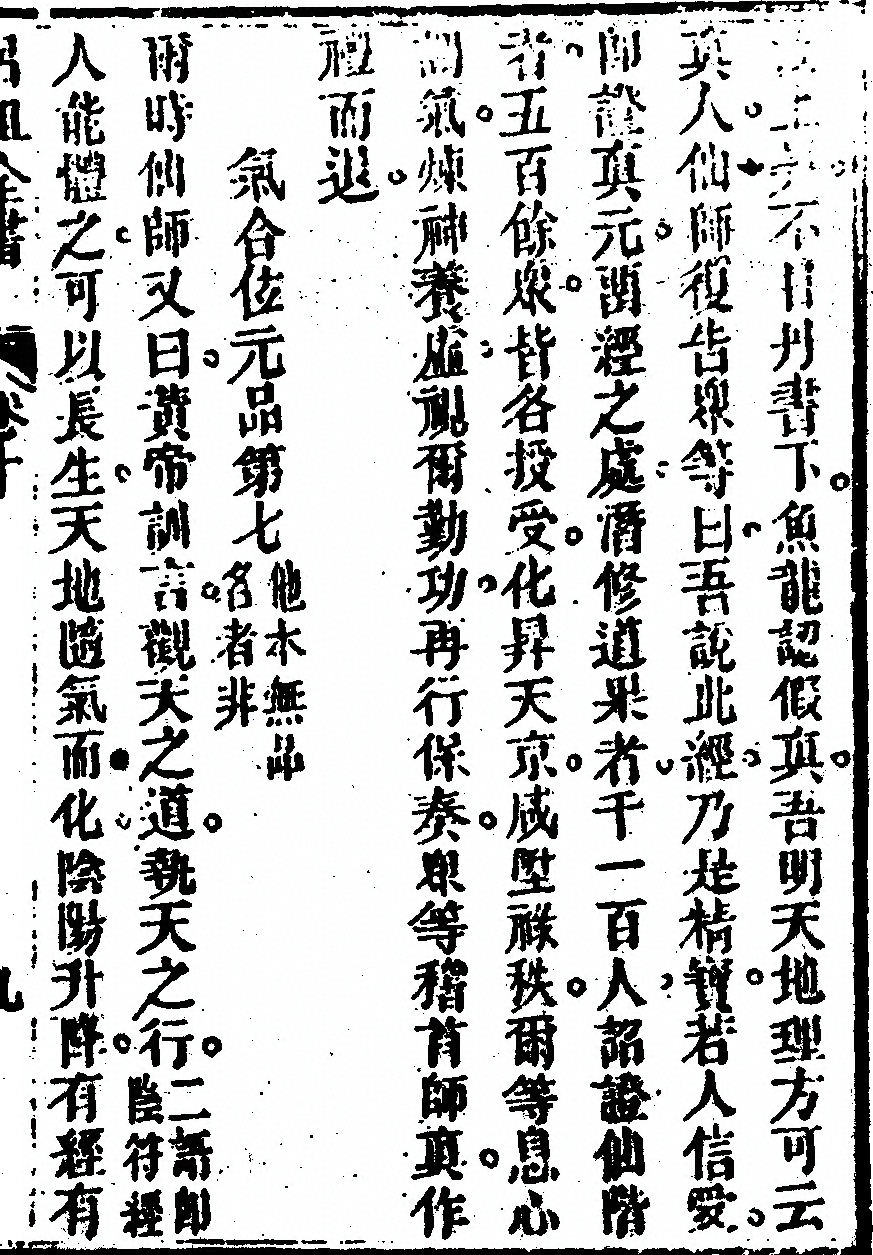 不日丹書下魚龍認假真吾明天地理方可云
真人仙師復告眾等曰吾說此經乃是精寶若人信受
即證真元留經之處潛修道果者千一百人詔證仙階
者五百餘眾皆各授受化昇天京咸墜祿秩爾等息心
調氣煉神養虛視爾勤功再行保奏眾等稽首師真作
禮而退
氣合位元品第七
他本無品
名者非
爾時仙師又曰黃帝訓言觀天之道執天之行
二語即
陰符經
人能體之可以長生天地隨氣而化陰陽升降有經有
呂祖全書 卷十 九